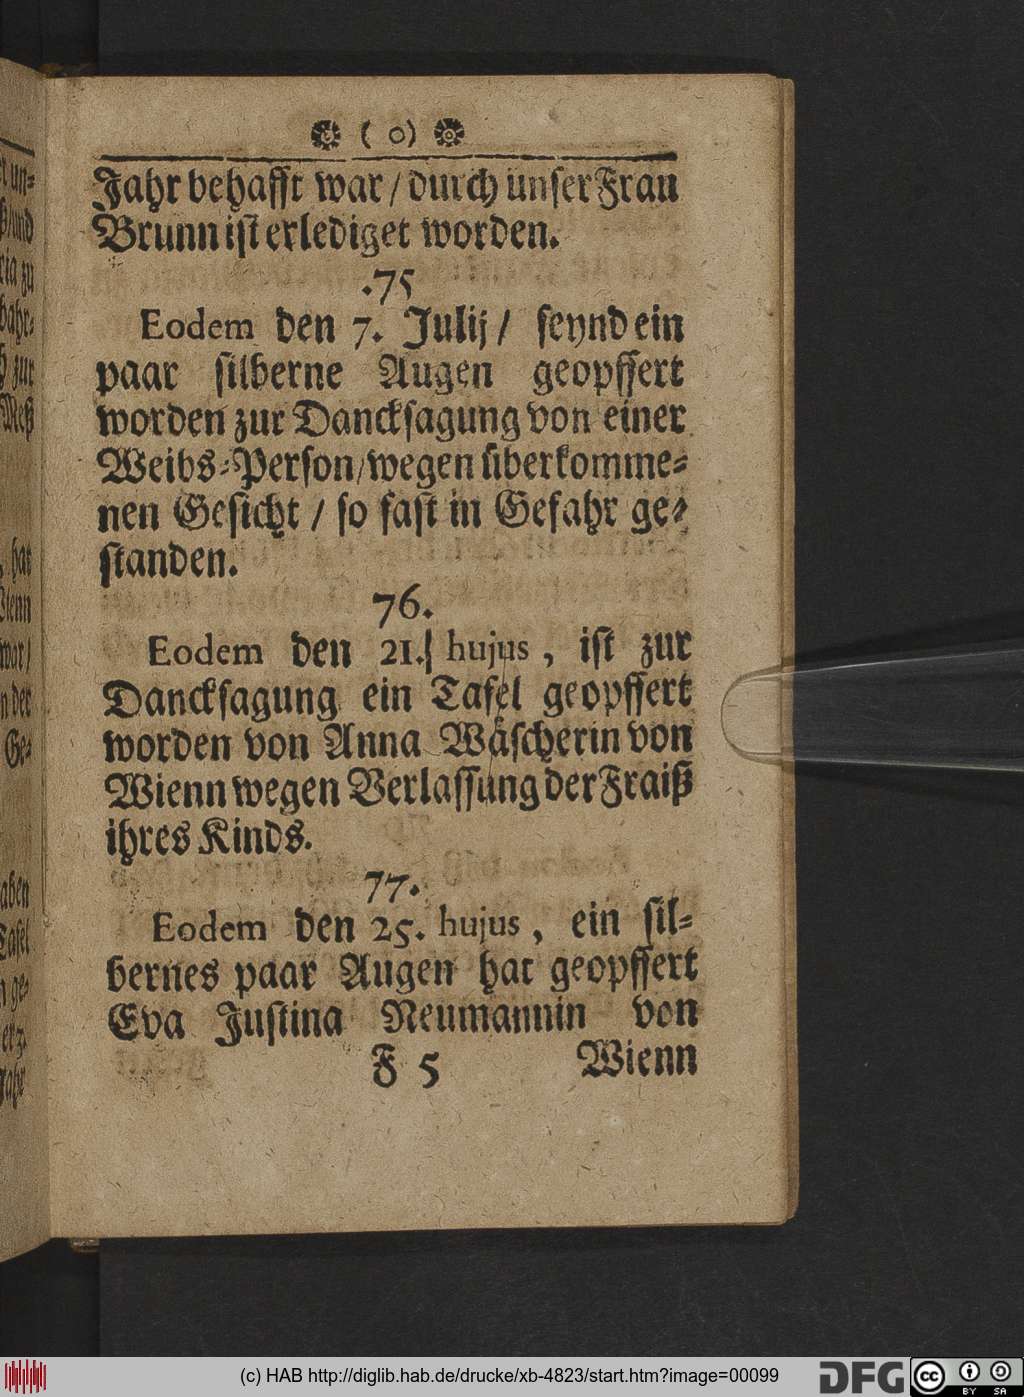 ( o )
Jahr behafft war / durch unser Frau
Brunn ist erlediget worden.
.75
Eodem den 7. Julij / seynd ein
paar silberne Augen geopffert
worden zur Dancksagung von einer
Weibs-Person / wegen überkomme-
nen Gesicht / so fast in Gefahr ge-
standen.
76.
Eodem den 21. hujus, ist zur
Dancksagung ein Tafel geopffert
worden von Anna Wäscherin von
Wienn wegen Verlassung der Fraiß
ihres Kinds.
77.
Eodem den 25. hujus, ein sil-
bernes paar Augen hat geopffert
Eva Justina Neumannin von
F 5 Wienn
(c) HAB http://diglib.hab.de/drucke/xb-4823/start.htm?image=00099
DFG
cc BY SA